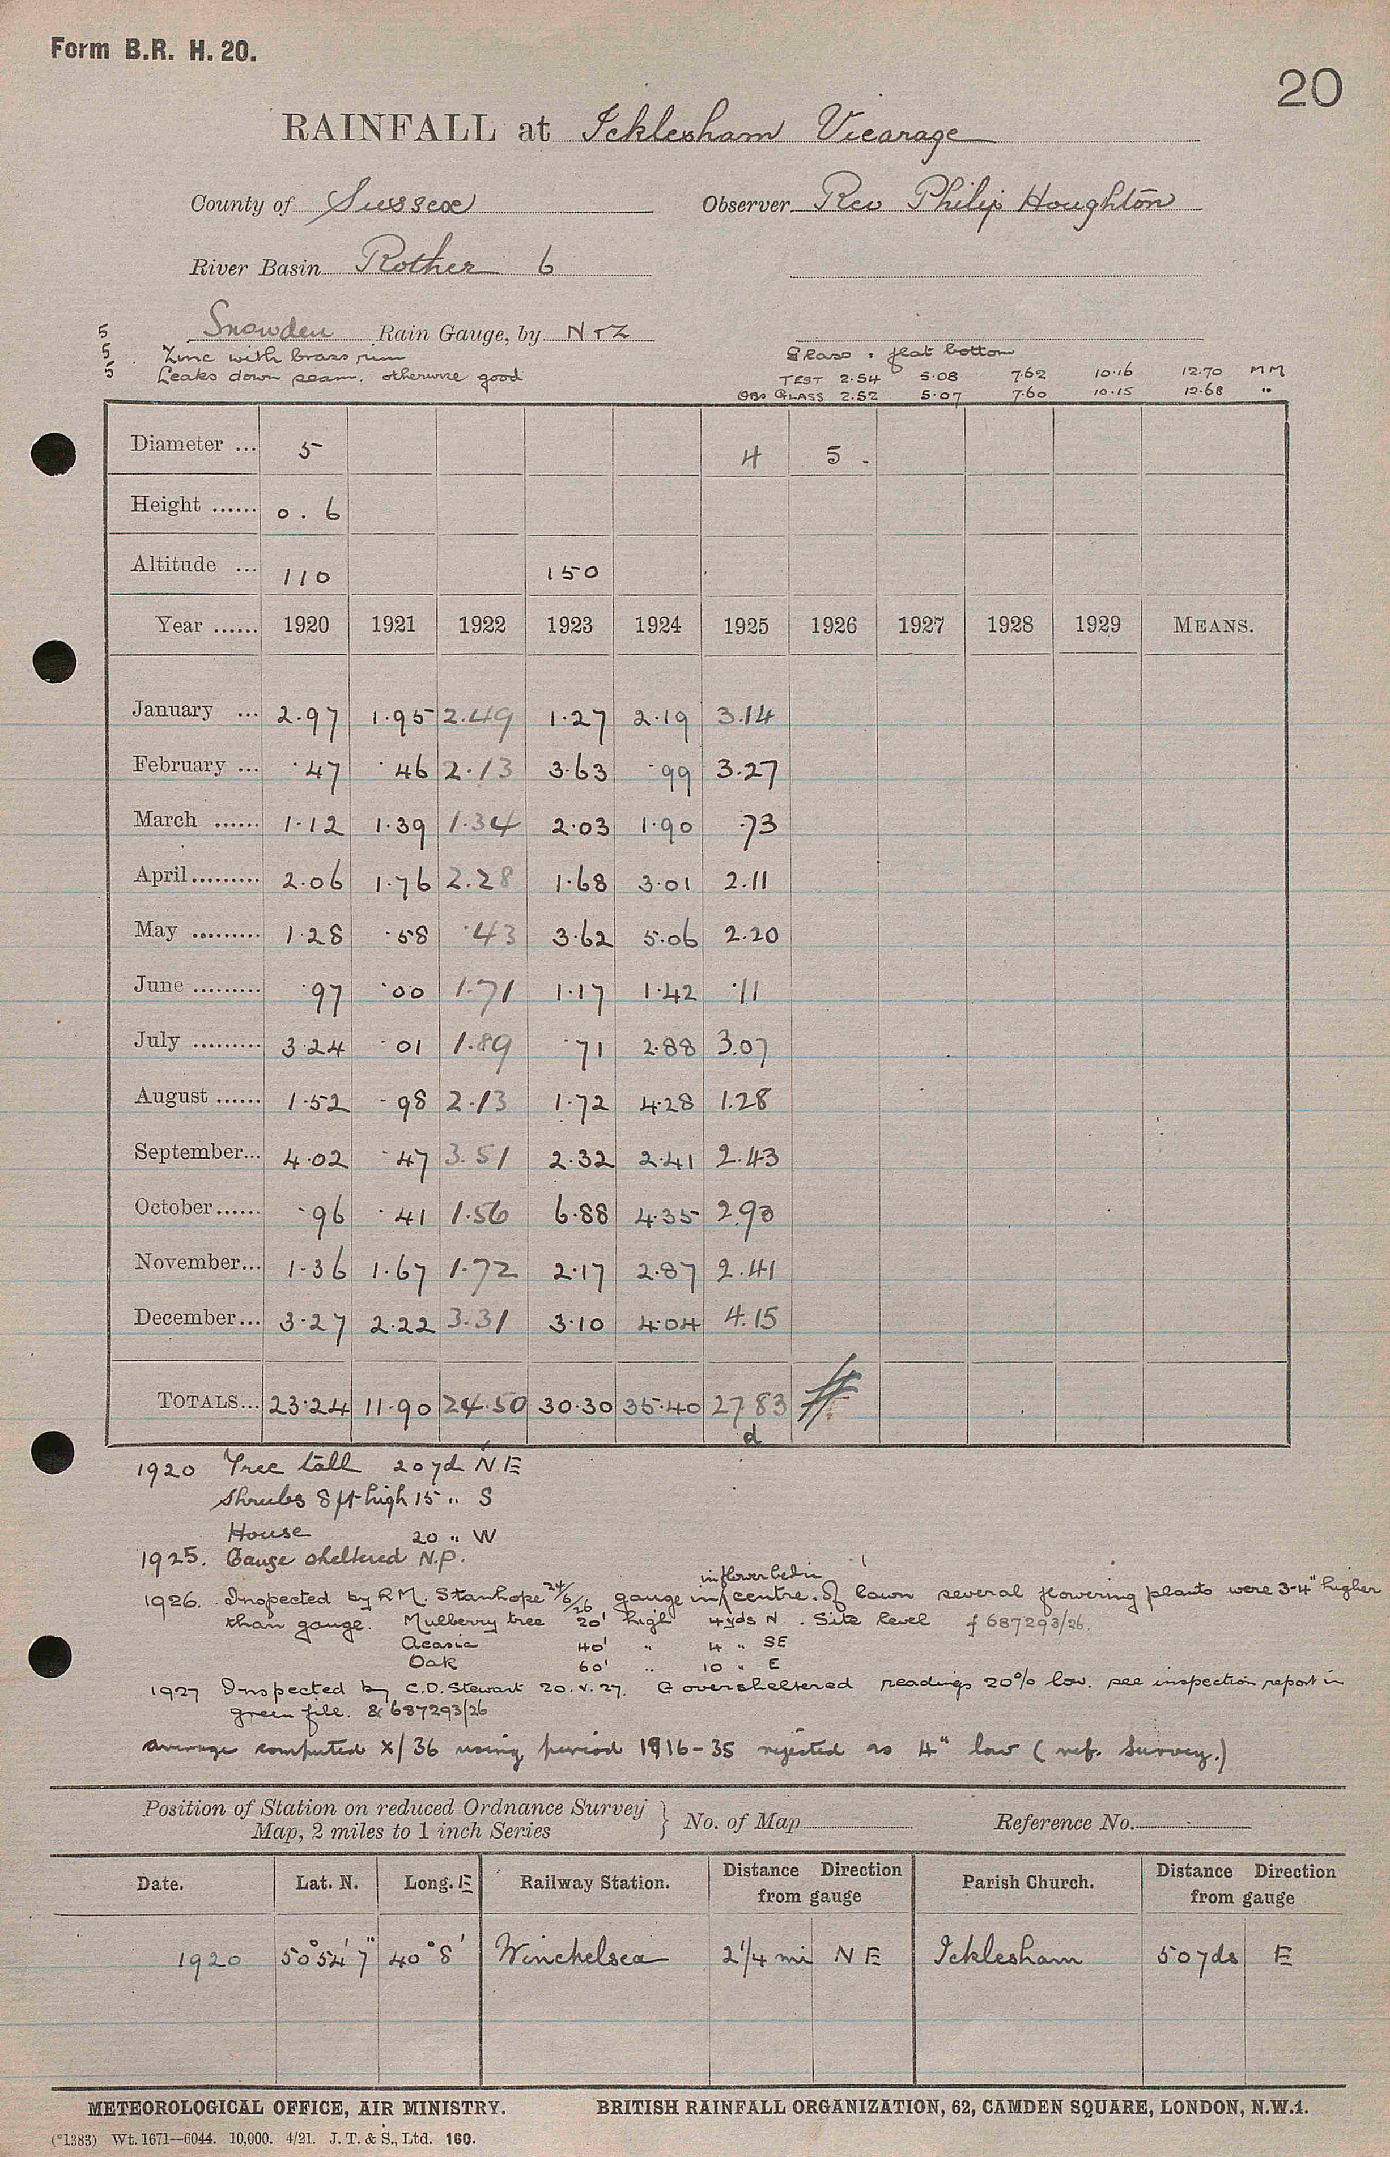 Form B.R. H. 20.
20
RAINFALL at Icklesham Vicarage
County of Sussex Observer Rev Philip Houghton
River Basin Rother 6
5 Snowden Rain Gauge, by N & Z
5 Zinc with brass rim Glass . flat bottom
5 Leaks down seam. otherwise good TEST 2.54 5.08 7.62 10.16 12.70 MM
OBS GLASS 2.52 5.07 7.60 10.15 12.68 "
Diameter ... 5 4 5
Height ...... 0 . 6
Altitude ... 110 150
Year ...... 1920 1921 1922 1923 1924 1925 1926 1927 1928 1929 MEANS.
January ... 2.97 1.95 2.49 1.27 2.19 3.14
February ... .47 .46 2.13 3.63 .99 3.27
March ...... 1.12 1.39 1.34 2.03 1.90 .73
April ......... 2.06 1.76 2.28 1.68 3.01 2.11
May ......... 1.28 .58 .43 3.62 5.06 2.20
June ......... .97 .00 1.71 1.17 1.42 .11
July ......... 3.24 .01 1.89 .71 2.88 3.07
August ...... 1.52 .98 2.13 1.72 4.28 1.28
September... 4.02 .47 3.51 2.32 2.41 2.43
October...... .96 .41 1.56 6.88 4.35 2.93
November... 1.36 1.67 1.72 2.17 2.87 2.41
December... 3.27 2.22 3.31 3.10 4.04 4.15
TOTALS... 23.24 11.90 24.50 30.30 35.40 27.83
d
1920 Tree tall 20 yds NE
Shrubs 8 ft high 15 " S
House 20 " W
1925. Gauge sheltered N.P.
in flower bed in
1926. Inspected by R.M. Stanhope 24/6/26 gauge in centre of lawn several flowering plants were 3-4" higher
than gauge. Mulberry tree 20' high 4 yds N . Site level f 687293/26.
Acasia 40' " 4 " SE
Oak 60' " 10 " E
1927 Inspected by C.D. Stewart 20.V.27. G oversheltered readings 20% low. see inspection report in
green file. & 687293/26
average computed X/36 using period 1916-35 rejected as 4" low (ref. Survey.)
Position of Station on reduced Ordnance Survey Map, 2 miles to 1 inch Series } No. of Map Reference No.
Date. Lat. N. Long. E Railway Station. Distance Direction from gauge Parish Church. Distance Direction from gauge
1920 50° 54' 7" 40° 8' Winchelsea 2 1/4 mi NE Icklesham 50 yds E
METEOROLOGICAL OFFICE, AIR MINISTRY. BRITISH RAINFALL ORGANIZATION, 62, CAMDEN SQUARE, LONDON, N.W.1.
(*1383) Wt. 1671—6044. 10,000. 4/21. J. T. & S., Ltd. 160.